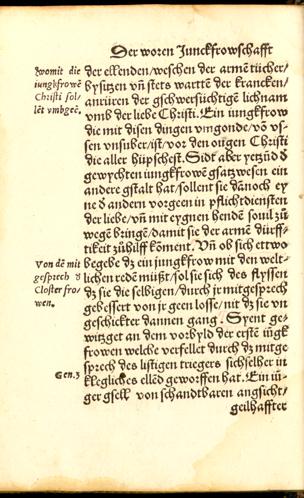 Der woren Junckfrowschafft
womit die
iungkfrowē
Christi sol-
lēt vmbgeē.
der ellenden/weschen der armē tücher/
bysitzen vñ stets wartē der krancken/
anrüren der gschwersüchtigē lichnam
vmb der liebe Christi. Ein iungkfrow
die mit disen dingen vmgonde/vō vs-
sen vnsuber/ist/vor den ougen Christi
die aller hüpschest. Sidt aber yetzūd d
gewychten iungkfrowē gsatz wesen ein
andere gstalt hat/sollent sie dānoch ey
ne d andern vorgeen in pflicht diensten
der liebe/vñ mit eygnen hendē souil zů
wegē bringē/damit sie der armē dürff-
tikeit zů hilff kōment. Vñ ob sich ettwo
Von dē mit
gesprech d
Closter fro-
wen.
begebe dz ein iungkfrow mit den welt-
lichen redē müßt/sol sie sich des flyssen
dz sie die selbigen/durch jr mitgesprech
gebessert von jr geen losse/nit dz sie vn
geschickter dannen gang. Syent ge-
witzget an dem vorbyld der erstē iūgk
frowen welche verfellet durch dz mitge
Gen.3
sprech des listigen triegers sich selber in
klegliches ellēd geworffen hat. Ein iü-
ger gsell von schandtbaren angsicht/
geilhaffter